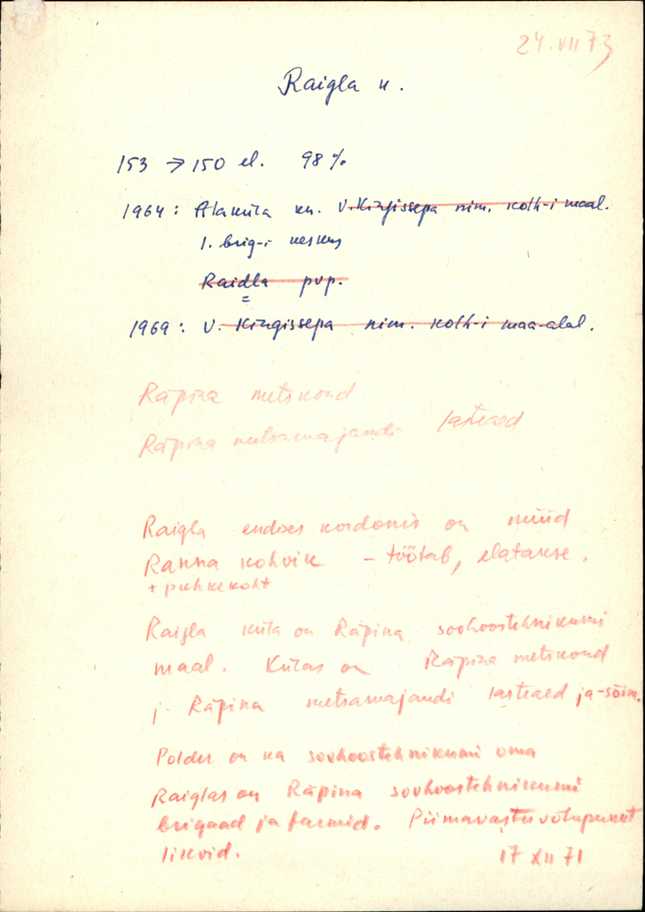 24.VII 73
Raigla k.
153 → 150 el. 98%
1964: Alaküla kn. V. Kingissepa nim. kolh-i maal.
1. brig-i keskus
Raidla pvp.
1969: V. Kingissepa nim. kolh-i maa-alal.
Räpina metskond
Räpina metsamajandi lasteaed
Raigla endises kordonis on nüüd
Ranna kohvik – töötab, elatakse.
+ puhkekoht
Raigla küla on Räpina sovhoostehnikumi
maal. Külas on Räpina metskond
j. Räpina metsamajandi lasteaed ja -sõim.
Polder on ka sovhoostehnikumi oma
Raiglas on Räpina sovhoostehnikumi
brigaad ja farmid. Piimavastuvõtupunkt
likvid. 17 XII 71